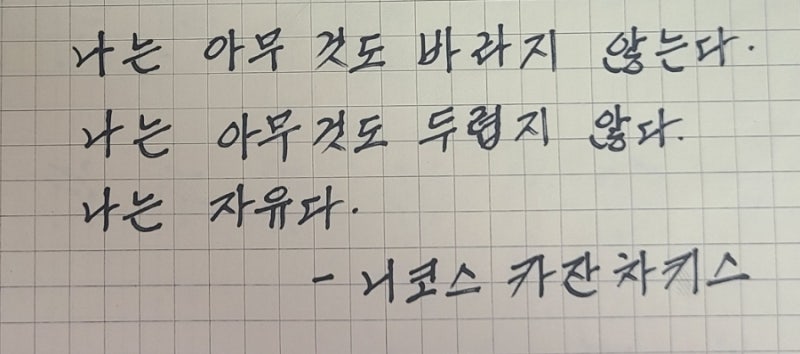 나는 아무 것도 바라지 않는다.
나는 아무것도 두렵지 않다.
나는 자유다.
- 니코스 카잔차키스